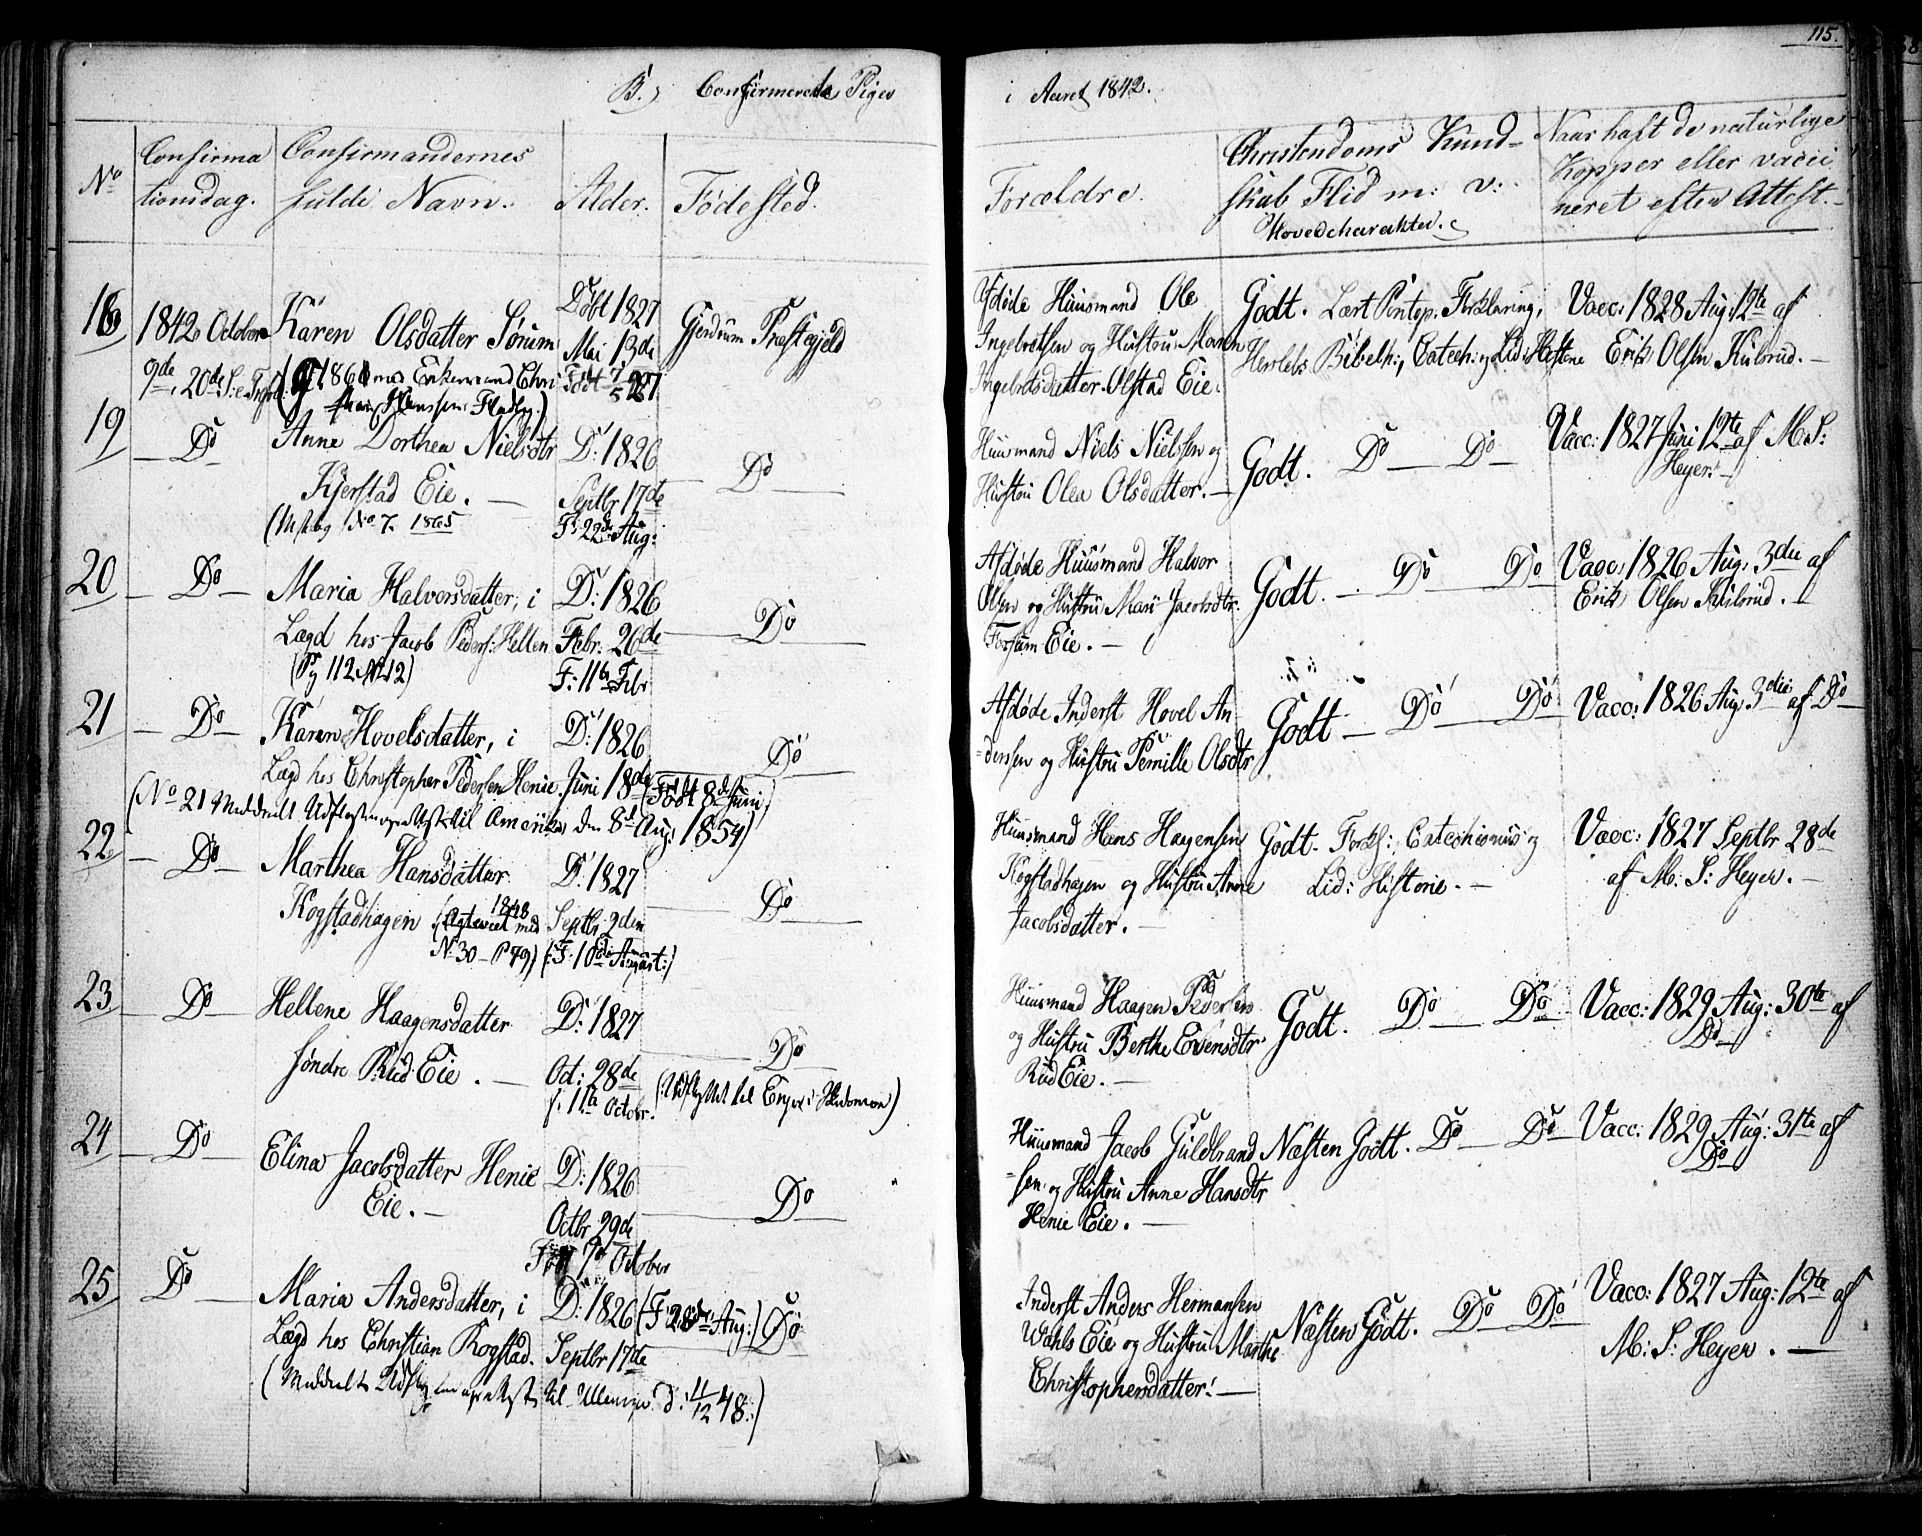 115.
B.) Confirmerede Piger i Aaret 1842.
No
Confirma
tionsdag.
Confirmandernes
fulde Navn.
Alder.
Fødested.
Forældre.
Christendoms Kund-
skab Flid m: v:
Hovedcharakter.
Naar haft de naturlige
Kopper eller vacci
neret efter Attest.
18
1842 October
9de, 20de S. e. Trefol.
Karen Olsdatter Sørum
(G. 1861 med Enkemand Chri
Hanssen Fladby.)
Døbt 1827
Mai 13de
Født 7/5 27
Gjerdrum Præstegjeld
Afdøde Huusmand Ole
Ingebretsen og Hustru Maren
Ingebretsdatter Olstad Eie.
Godt. Lært Pontop. Forklaring,
Herslebs Bibelh:, Catech: og Lid: Historie
Vacc: 1828 Aug: 12te af
Erik Olsen Kulsrud.
19
Do
Anne Dorthea Nielsdtr
Kjerstad Eie.
No 7. 1865
D: 1826
Septbr 17de
F: 22de Aug:
Do
Huusmand Niels Nielsen og
Hustru Olea Olsdatter.
Godt. Do Do
Vacc: 1827 Juni 12te af M. S:
Heyer.
20
Do
Maria Halvorsdatter, i
Lægd hos Jacob Peders: Hellen
(Pg 112 No 12)
D: 1826
Febr: 26de
F: 11te Febr
Do
Afdøde Huusmand Halvor
Olsen og Hustru Mari Jacobsdtr.
Forsum Eie.
Godt. Do Do
Vacc: 1826 Aug: 3die af
Erik Olsen Kulsrud.
21
Do
Karen Hovelsdatter, i
Lægd hos Christopher Pedersen Henie.
D: 1826
Juni 18de
(Født 8de Juni)
Do
(No 21 Meddeelt Udflytningsattest til Amerika den 8de Aug: 1854)
Afdøde Inderst Hovel An
=dersen og Hustru Pernille Olsdtr
Godt Do Do
Vacc: 1826 Aug 3die af Do
22
Do
Marthea Hansdatter
Kogstadhagen (Egteviet 1848 med
No 30 - P 79)
D: 1827
Septbr 2den
(F: 10de August:)
Do
Huusmand Hans Haagensen
Kogstadhagen og Hustru Anne
Jacobsdatter.
Godt. Forkl:, Catechismus og
Lid: Historie.
Vacc: 1827 Septbr 28de
af M: S: Heyer.
23
Do
Hellene Haagensdatter
søndre Rud Eie.
D: 1827
Oct: 28de
f. 11te Octobr.
Do
(Udflyttet til)
Huusmand Haagen Pedersen
og Hustru Berthe Evensdtr
Rud Eie.
Godt. Do Do
Vacc: 1829 Aug: 30te af
Do
24
Do
Elina Jacobsdatter Henie
Eie.
D: 1826
Octbr 29de
Født 7de October
Do
Huusmand Jacob Guldbrand
=sen og Hustru Anne Hansdtr
Henie Eie.
Næsten Godt. Do Do
Vacc: 1829 Aug: 31te af
Do
25
Do
Maria Andersdatter, i
Lægd hos Christian Kogstad.
D: 1826
Septbr 17de
(F: 28de Aug:)
Do
(Meddeelt Udflytningsattest til d: 11/12 48.)
Inderst Anders Hermansen
Wahls Eie og Hustru Marthe
Christophersdatter.
Næsten Godt. Do Do
Vacc: 1827 Aug: 12te af
M: S: Heyer.